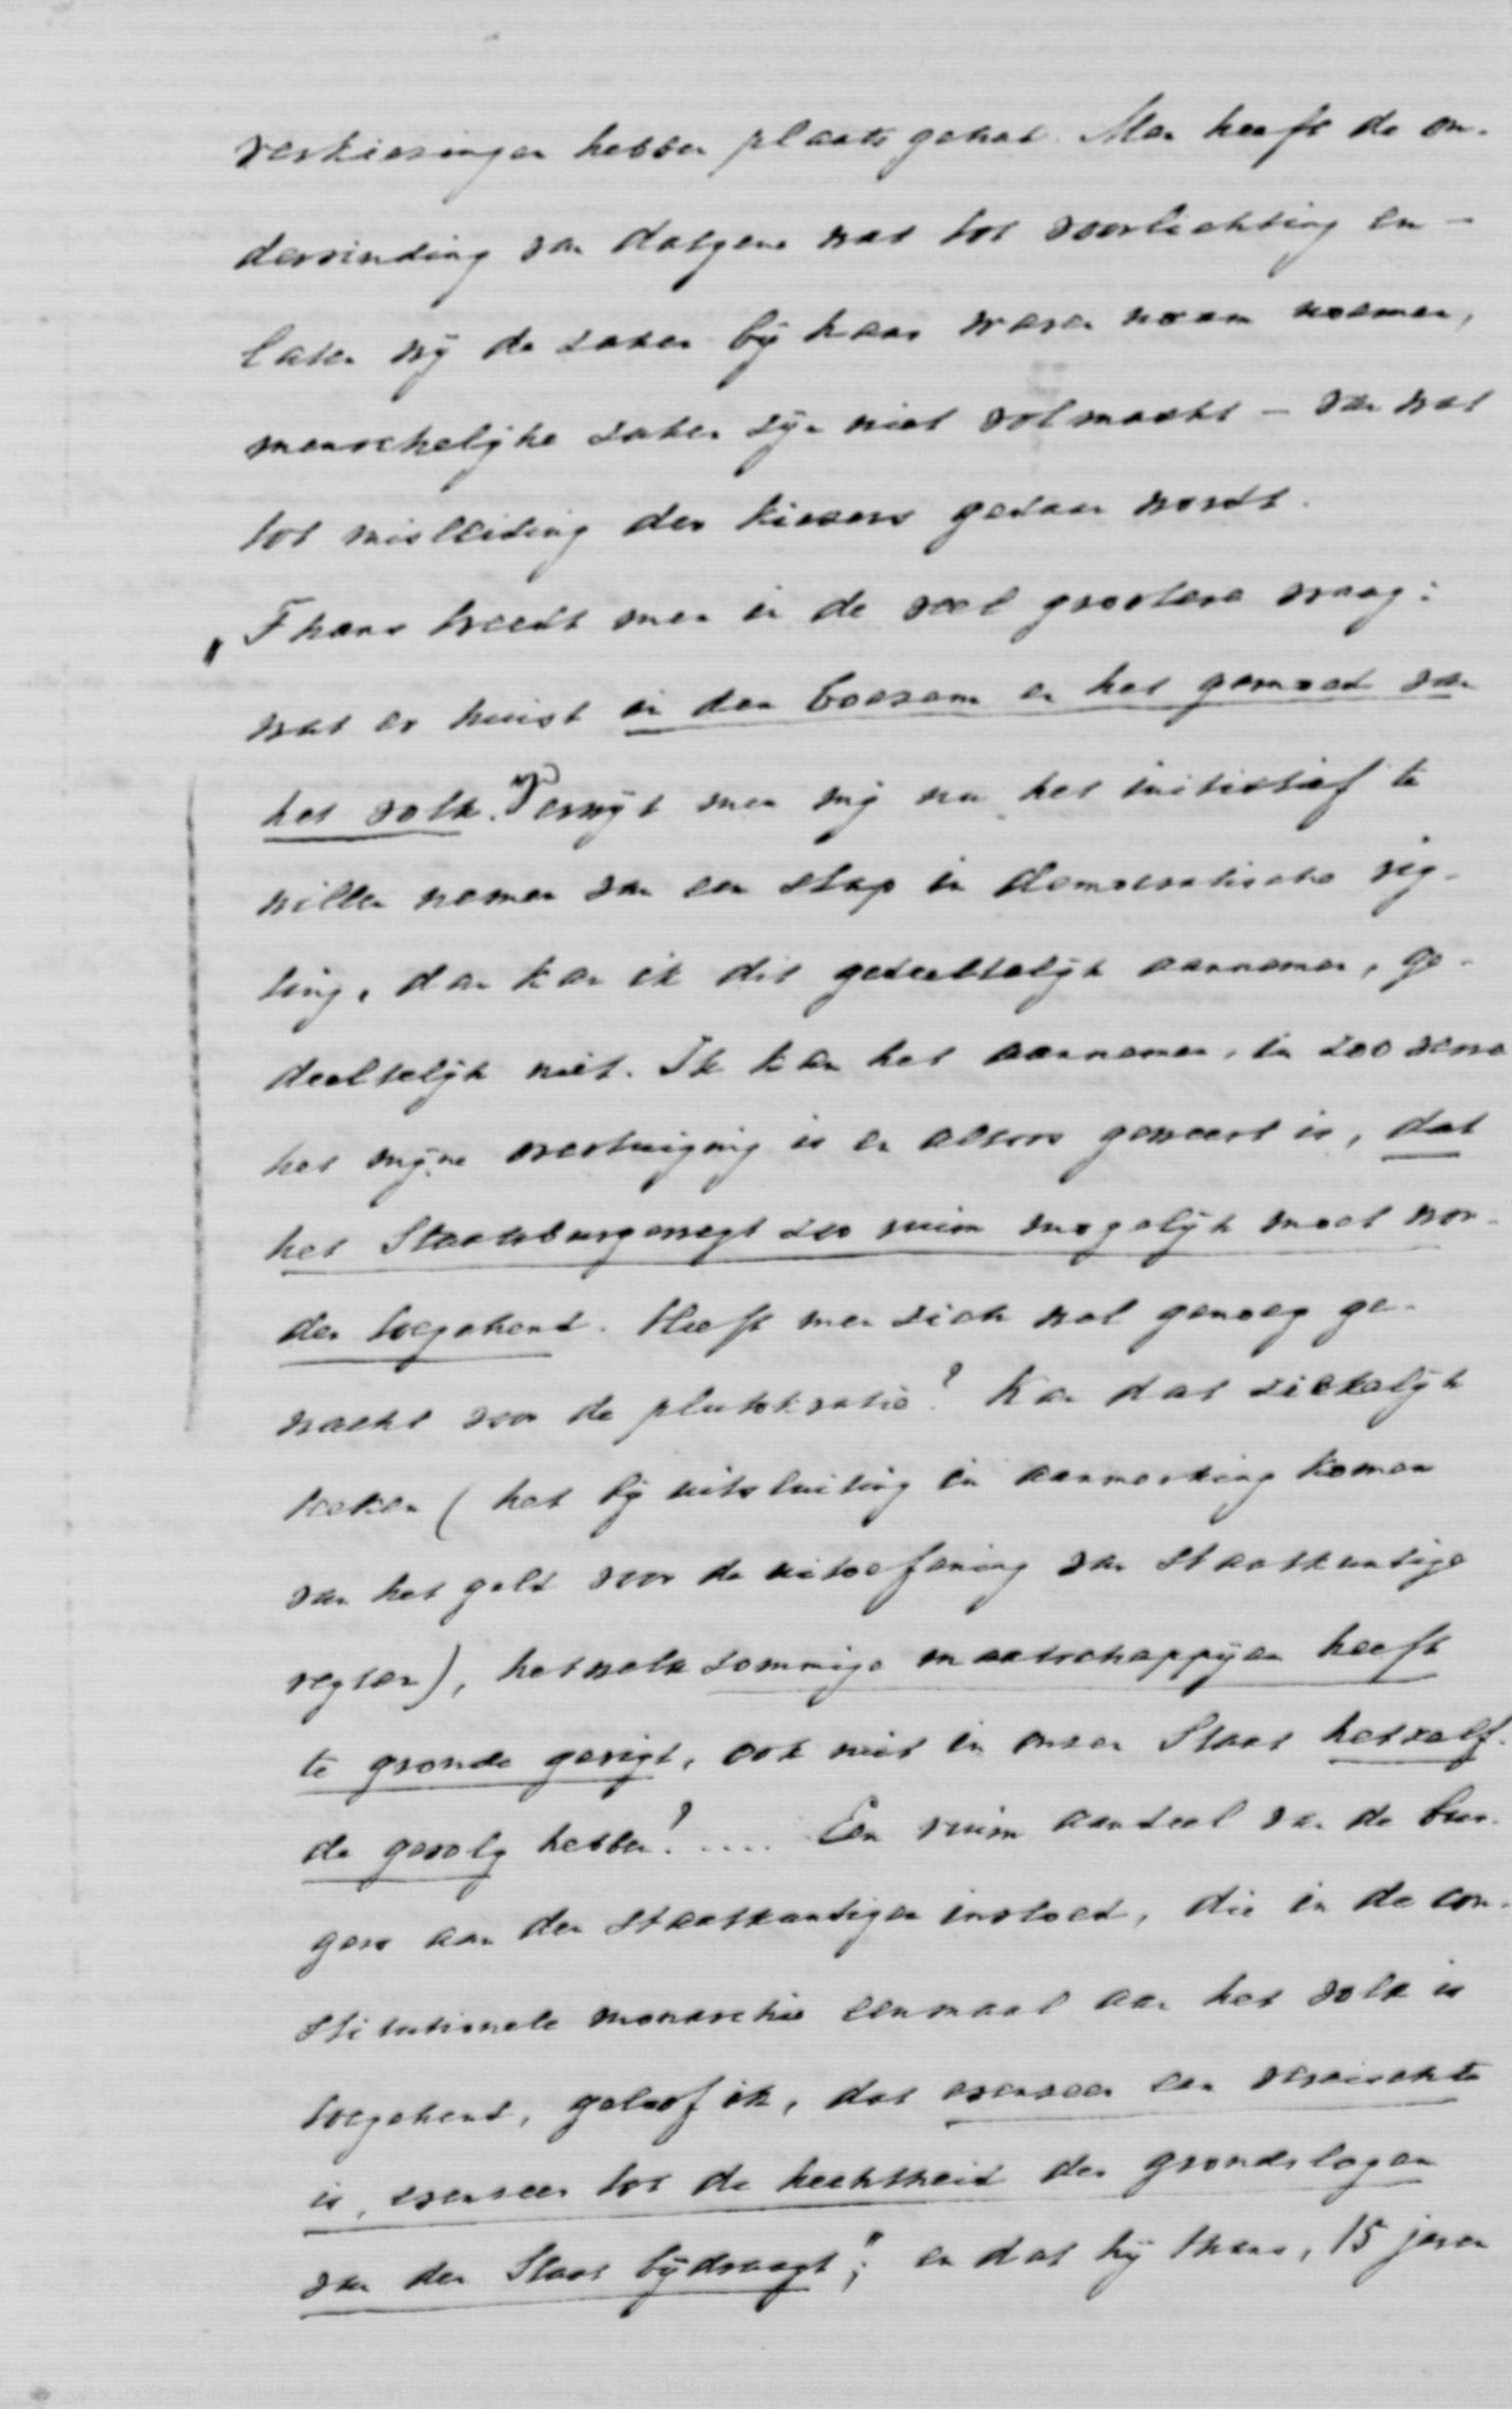 verkiezingen hebben plaats gehad. Men heeft de on-
dervinding van datgene wat tot voorlichting en -
laten wij de zaken bij haar waren naam noemen,
menschelijke zaken zijn niet volmaakt - van wat
tot misleiding der kiezers gedaan wordt.
„Thans treedt men in de veel grootere vraag:
wat er huist in den boezem en het gemoed van
het volk. Verwijt men mij nu het initiatief te
willen nemen van een stap in democratische rig-
ting, dan kan ik dit gedeeltelijk aannemen, ge-
deeltelijk niet. Ik kan het aannemen, in zoo verre
het mijne overtuiging is en altoos geweest is, dat
het Staatsburgerregt zoo ruim mogelijk moet wor-
den toegekend. Heeft men zich wel genoeg ge-
wacht voor de plutokratie? Kan dat ziekelijk
teeken (het bij uitsluiting in aanmerking komen
van het geld voor de uitoefening van staatkundige
regten), hetwelk sommige maatschappijen heeft
te gronde gerigt, ook niet in onzen Staat hetzelf-
de gevolg hebben? .... Een ruim aandeel van de bur-
gers aan den staatkundigen invloed, die in de con-
stitutionele monarchie eenmaal aan het volk is
toegekend, geloof ik, dat evenzeer een vereischte
is, evenzeer tot de hechtheid der grondslagen
van den Staat bijdraagt"; en dat hij thans, 15 jaren